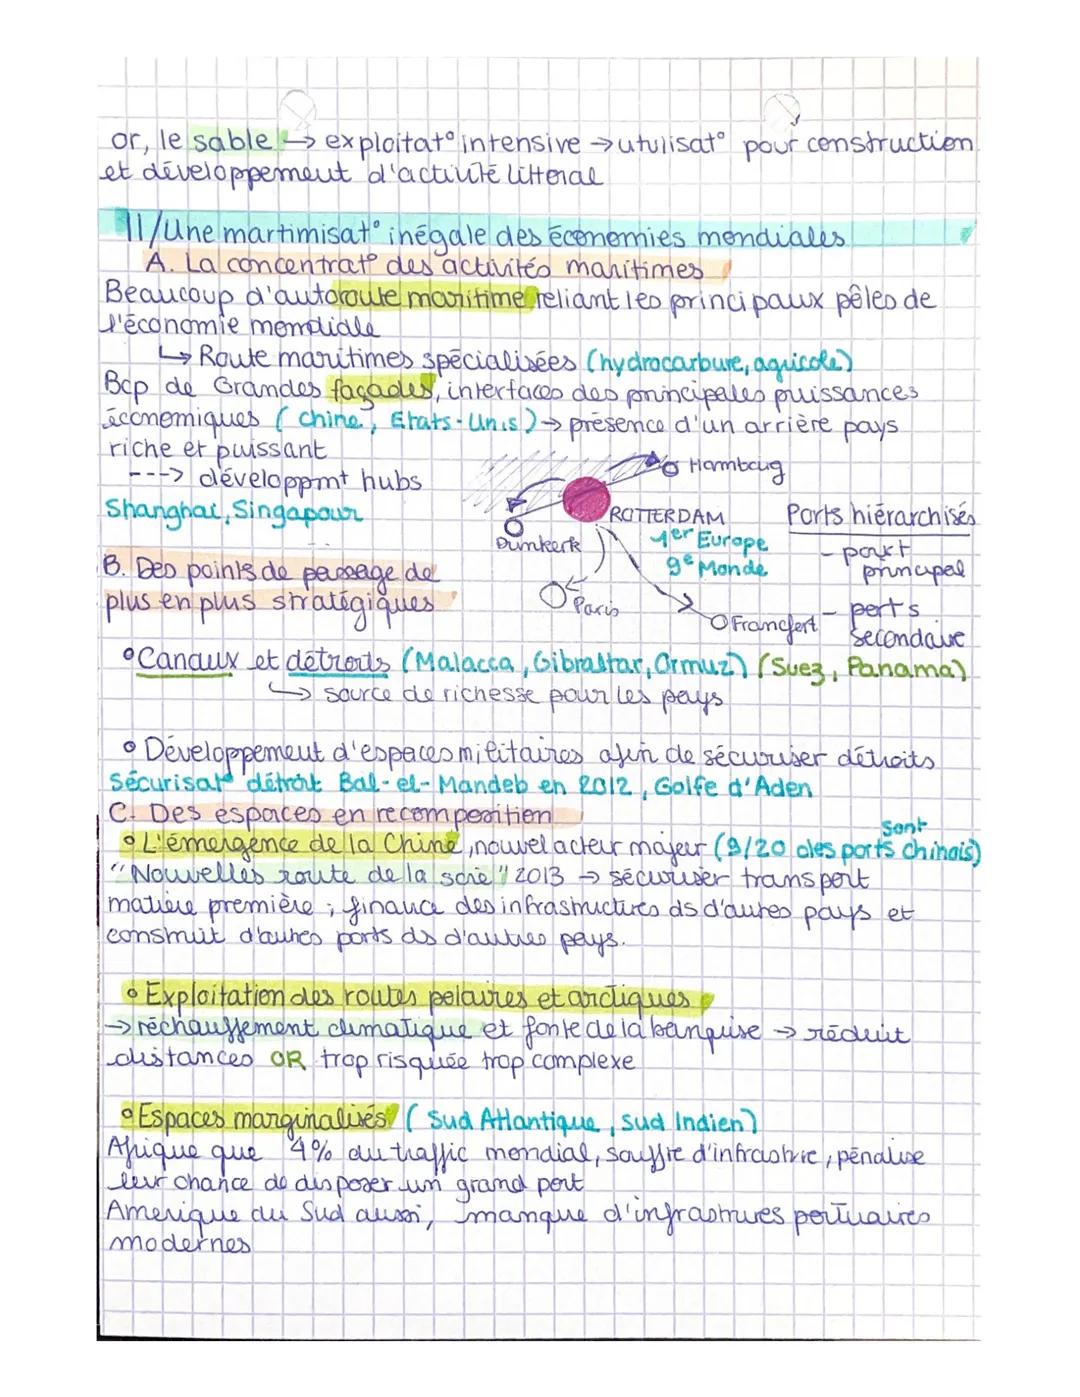 or, le sable → exploitat° intensive → utulisat° pour construction
et développement d'activité litteral
II/Une martimisat° inégale des économies mondiales
A. La concentrat° des activités maritimes
Beaucoup d'autoroute maritime reliant les principaux pôles de
l'économie mondiale
↳ Route maritimes spécialisées (hydrocarbure, agricole)
Bcp de Grandes façades, interfaces des principales puissances
économiques (chine, Etats-Unis) → présence d'un arrière pays
riche et puissant
---> développmt hubs
Shanghai, Singapour
Hambourg
ROTTERDAM
1er Europe
9e Monde
Dunkerk
Paris
Francfort
Ports hiérarchisés
- port principal
- ports secondaire
B. Des points de passage de
plus en plus stratégiques
° Canaux et détroits (Malacca, Gibraltar, Ormuz) (Suez, Panama)
↳ source de richesse pour les pays
° Développement d'espaces militaires afin de sécuriser détroits
Sécurisat° détroit Bal-el-Mandeb en 2012, Golfe d'Aden
C. Des espaces en recomposition
° L'émergence de la Chine, nouvel acteur majeur (9/20 des ports sont chinois)
"Nouvelles route de la soie" 2013 → sécuriser transport
matière première ; finance des infrastructures ds d'autres pays et
construit d'autres ports ds d'autres pays.
° Exploitation des routes polaires et arctiques
→ réchauffement climatique et fonte de la banquise → réduit
distances OR trop risquée trop complexe
° Espaces marginalisés (Sud Atlantique, Sud Indien)
Afrique que 4% du traffic mondial, souffre d'infrastrure, pénalise
leur chance de disposer un grand port
Amerique du Sud aussi, manque d'infrastrures portuaires
modernes